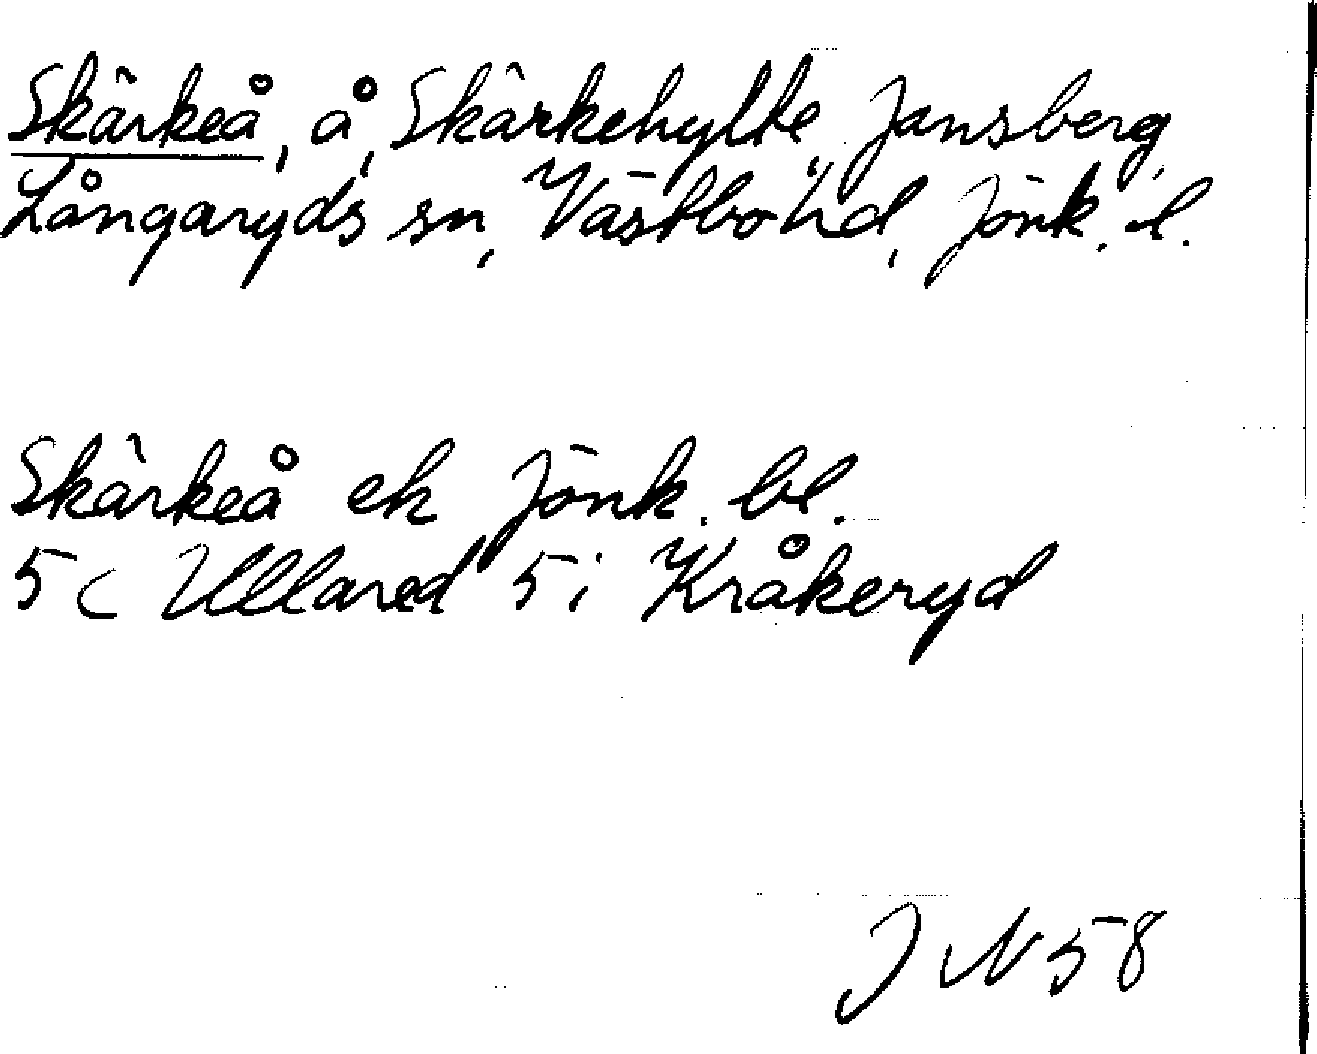 Skärkeå, å, Skärkehylte, Jansberg,
Långaryds sn, Västbo hd, Jönk. l.
Skärkeå ek Jönk. bl.
5c Ullared 5i Kråkeryd
JN58